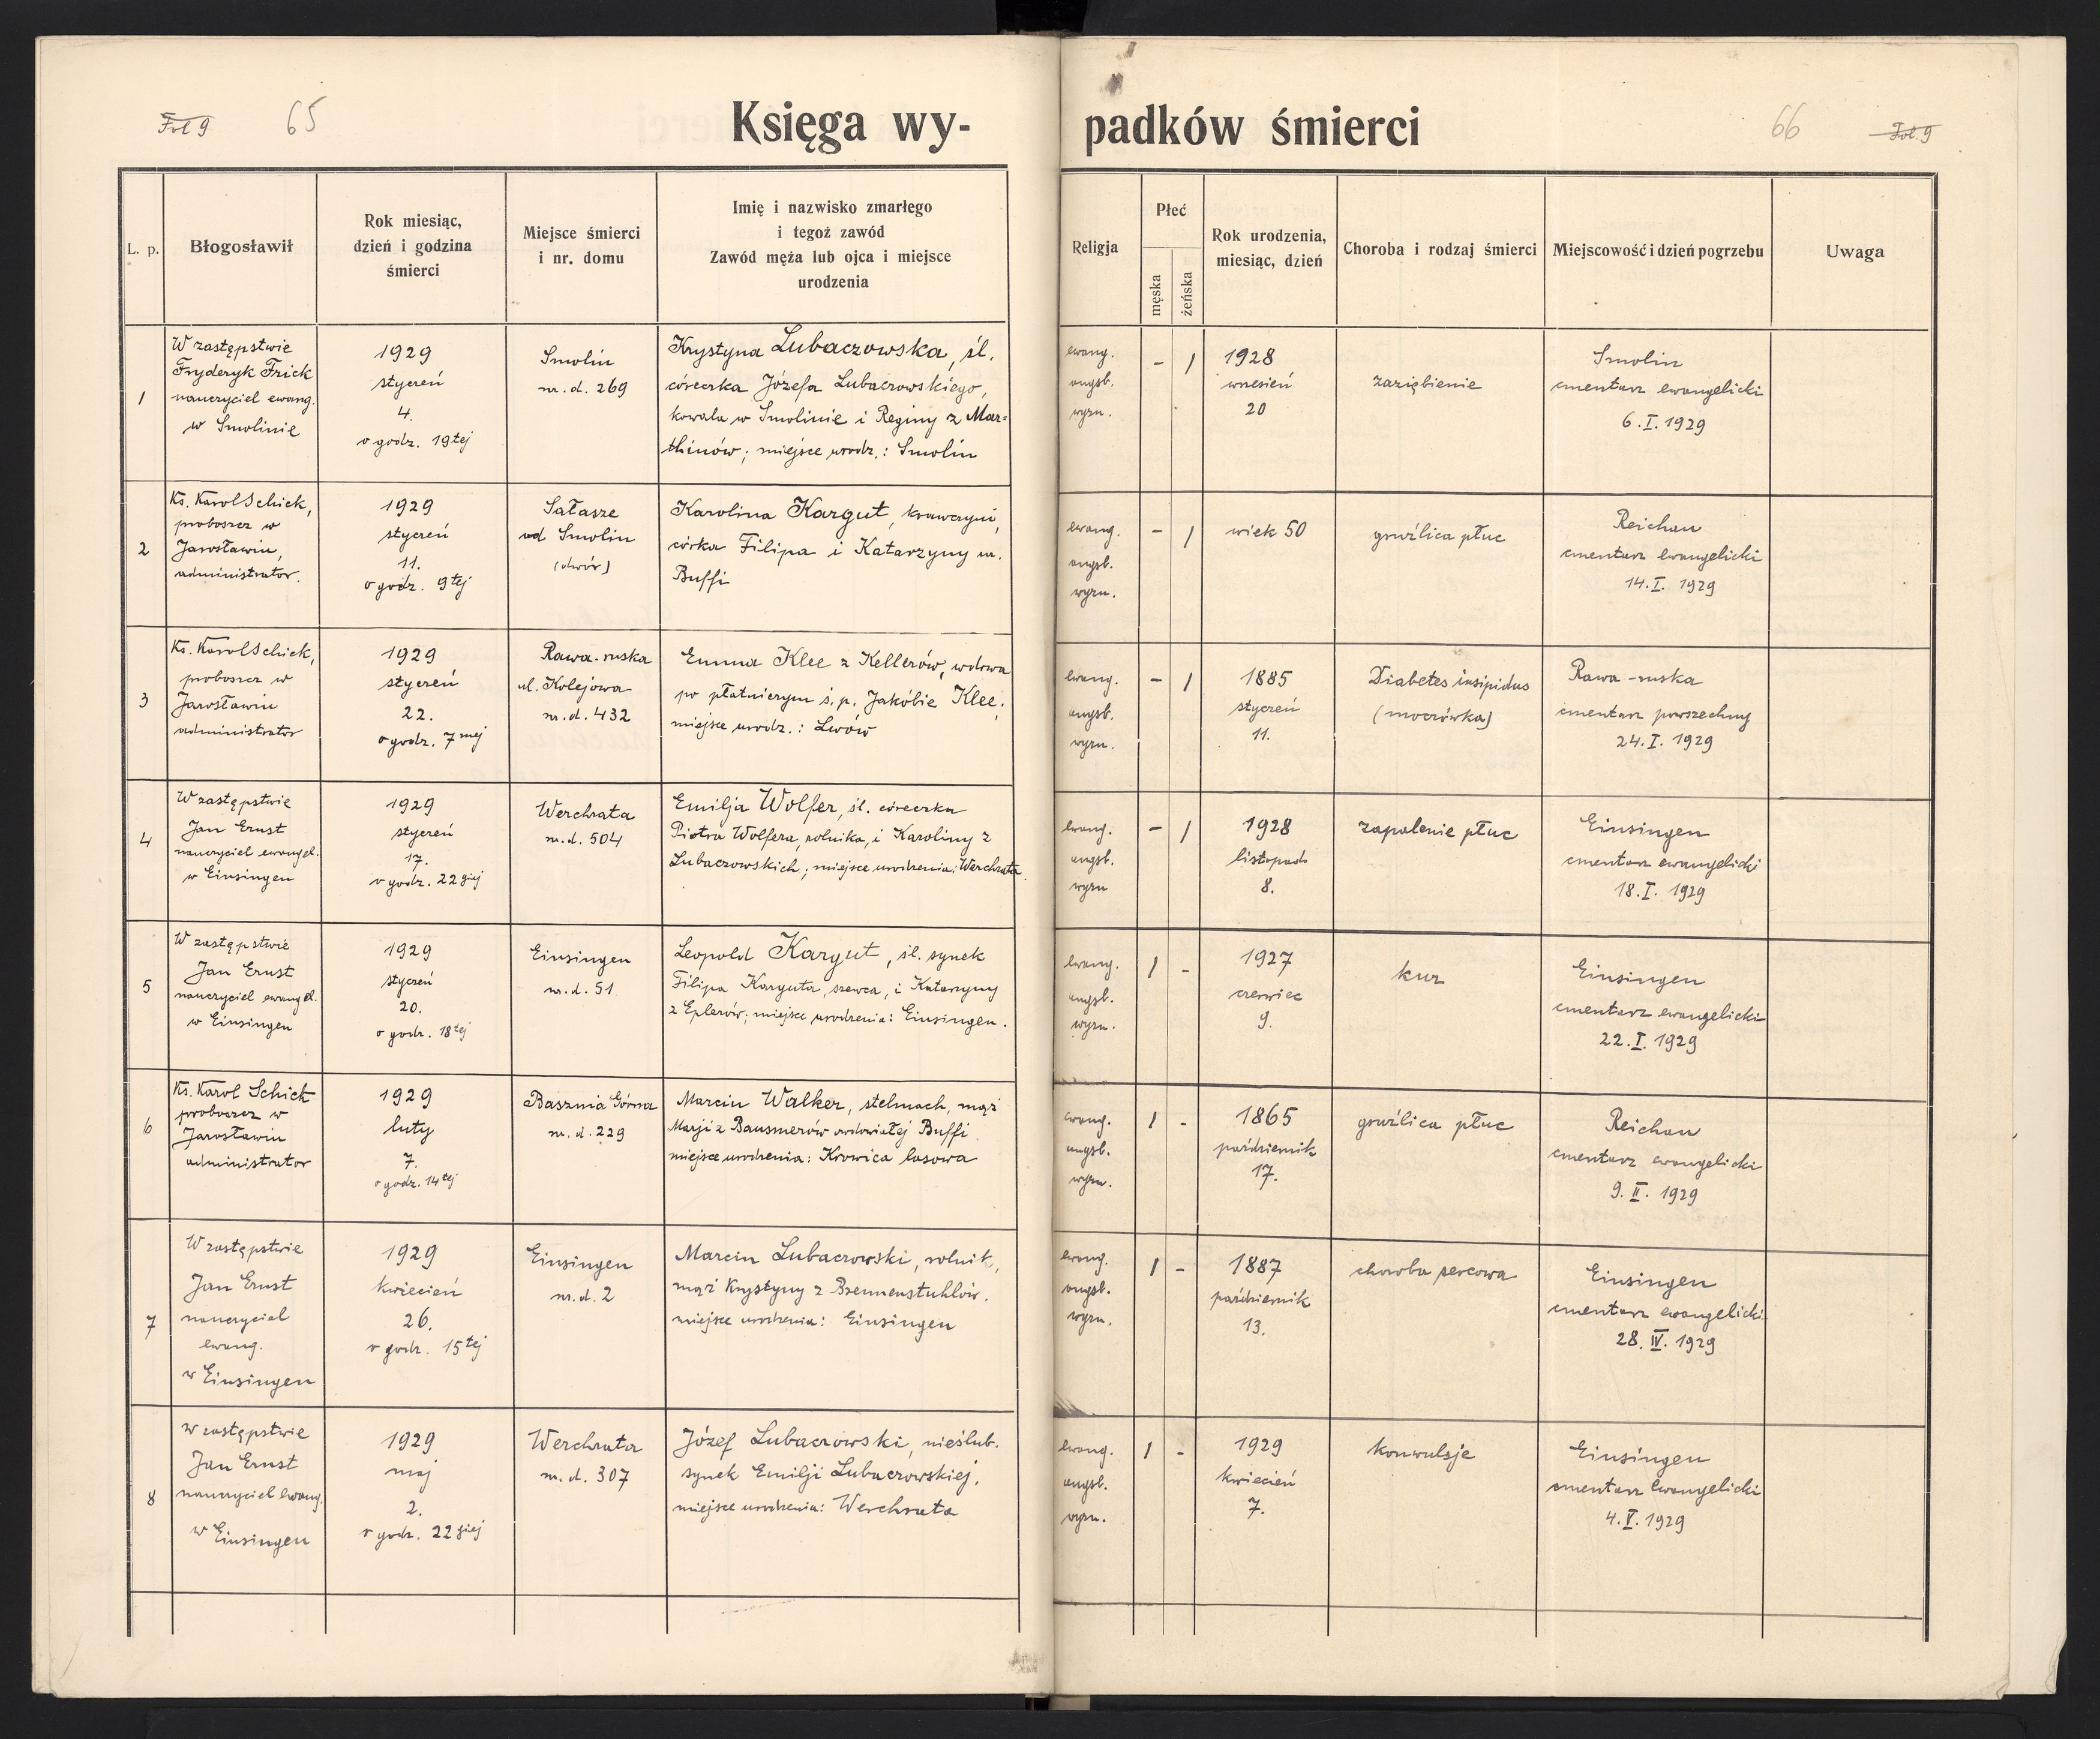 Fol 9
65
Księga wy-
padków śmierci
66
Fol. 9
L. p.
Błogosławił
Rok miesiąc,
dzień i godzina
śmierci
Miejsce śmierci
i nr. domu
Imię i nazwisko zmarłego
i tegoż zawód
Zawód męża lub ojca i miejsce
urodzenia
Religja
Płeć
męska
żeńska
Rok urodzenia,
miesiąc, dzień
Choroba i rodzaj śmierci
Miejscowość i dzień pogrzebu
Uwaga
1
W zastępstwie
Fryderyk Frick
nauczyciel ewang.
w Smolinie
1929
styczeń
4.
o godz. 19tej
Smolin
nr. d. 269
Krystyna Lubaczowska, śl.
córeczka Józefa Lubaczowskiego,
kowala w Smolinie i Reginy z Mar=
thinów; miejsce urodz.: Smolin
ewang.
augsb.
wyzn.
- 1
1928
wrzesień
20
zaziębienie
Smolin
cmentarz ewangelicki
6. I. 1929
2
Ks. Karol Schick,
proboszcz w
Jarosławiu,
administrator.
1929
styczeń
11.
o godz. 9tej
Sałasze
ad Smolin
(dwór)
Karolina Kargut, krawczyni,
córka Filipa i Katarzyny ur.
Buffi
ewang.
augsb.
wyzn.
- 1
wiek 50
gruźlica płuc
Reichau
cmentarz ewangelicki
14. I. 1929
3
Ks. Karol Schick,
proboszcz w
Jarosławiu
administrator
1929
styczeń
22.
o godz. 7mej
Rawa-ruska
ul. Kolejowa
nr. d. 432
Emma Klee z Kellerów, wdowa
po płatniczym ś. p. Jakóbie Klee.
miejsce urodz.: Lwów
ewang.
augsb.
wyzn.
- 1
1885
styczeń
11.
Diabetes insipidus
(moczówka)
Rawa-ruska
cmentarz powszechny
24. I. 1929
4
W zastępstwie
Jan Ernst
nauczyciel ewangel.
w Einsingen
1929
styczeń
17.
o godz. 22giej
Werchrata
nr. d. 504
Emilja Wolfer, śl. córeczka
Piotra Wolfera, rolnika, i Karoliny z
Lubaczowskich; miejsce urodzenia: Werchrata.
ewang.
augsb.
wyzn
- 1
1928
listopad
8.
zapalenie płuc
Einsingen
cmentarz ewangelicki
18. I. 1929
5
W zastępstwie
Jan Ernst
nauczyciel ewangel.
w Einsingen
1929
styczeń
20.
o godz. 18tej
Einsingen
nr. d. 51
Leopold Kargut, śl. synek
Filipa Karguta, szewca, i Katarzyny
z Eplerów; miejsce urodzenia: Einsingen.
ewang.
augsb.
wyzn.
1 -
1927
czerwiec
9.
kur
Einsingen
cmentarz ewangelicki
22. I. 1929
6
Ks. Karol Schick
proboszcz w
Jarosławiu
administrator
1929
luty
7.
o godz. 14tej
Basznia Górna
nr. d. 229
Marcin Walker, stelmach, mąż
Marji z Bausmerów owdowiałej Buffi.
miejsce urodzenia: Krowica lasowa
ewang.
augsb.
wyzn.
1 -
1865
październik
17.
gruźlica płuc
Reichau
cmentarz ewangelicki
9. II. 1929
7
W zastępstwie
Jan Ernst
nauczyciel
ewang.
w Einsingen
1929
kwiecień
26.
o godz. 15tej
Einsingen
nr. d. 2
Marcin Lubaczowski, rolnik,
mąż Krystyny z Brennenstuhlów.
miejsce urodzenia: Einsingen
ewang.
augsb.
wyzn.
1 -
1887
październik
13.
choroba sercowa
Einsingen
cmentarz ewangelicki
28. IV. 1929
8
W zastępstwie
Jan Ernst
nauczyciel ewang.
w Einsingen
1929
maj
2.
o godz. 22giej
Werchrata
nr. d. 307
Józef Lubaczowski, nieślub.
synek Emilji Lubaczowskiej,
miejsce urodzenia: Werchrata
ewang.
augsb.
wyzn.
1 -
1929
kwiecień
7.
konwulsje
Einsingen
cmentarz ewangelicki
4. V. 1929